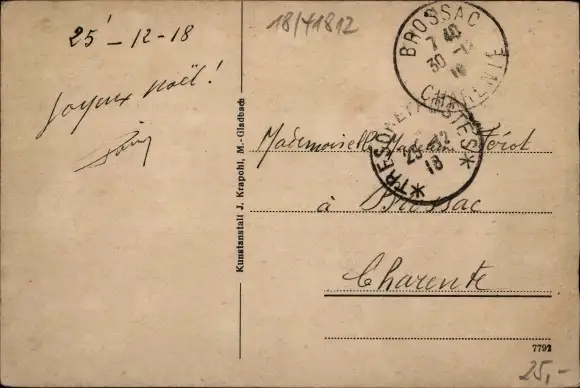 25 - 12 - 18
Joyeux noël !
18/41812
BROSSAC
7 40
30 -12
18
CHARENTE
*TRESOR ET POSTES*
25 -12
18
Mademoiselle
à Brossac
Charente
Kunstanstalt J. Krapohl, M.-Gladbach
7792
25,-